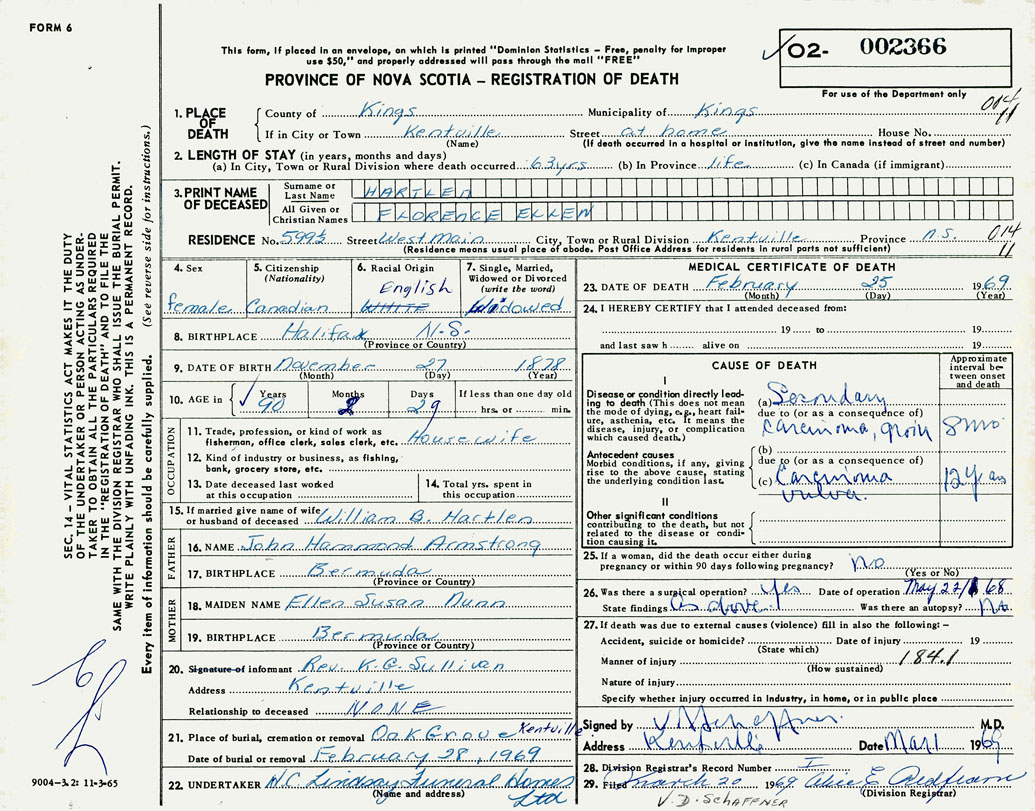 FORM 6
This form, if placed in an envelope, on which is printed "Dominion Statistics – Free, penalty for improper
use $50," and properly addressed will pass through the mail "FREE"
PROVINCE OF NOVA SCOTIA – REGISTRATION OF DEATH
02- 002366
For use of the Department only
1. PLACE OF DEATH County of Kings Municipality of Kings 014 11
If in City or Town Kentville Street at home House No.
(Name) (If death occurred in a hospital or institution, give the name instead of street and number)
2. LENGTH OF STAY (in years, months and days)
(a) In City, Town or Rural Division where death occurred 63 yrs (b) In Province life (c) In Canada (if immigrant)
3. PRINT NAME OF DECEASED Surname or Last Name HARTLEN
All Given or Christian Names FLORENCE ELLEN
RESIDENCE No. 599½ Street West Main City, Town or Rural Division Kentville Province N.S. 014 11
(Residence means usual place of abode. Post Office Address for residents in rural parts not sufficient)
4. Sex female
5. Citizenship (Nationality) Canadian
6. Racial Origin English WHITE
7. Single, Married, Widowed or Divorced (write the word) Widowed
8. BIRTHPLACE Halifax N.S.
(Province or Country)
9. DATE OF BIRTH November 27 1878
(Month) (Day) (Year)
10. AGE in Years 90 Months 2 Days 29 If less than one day old hrs. or min.
OCCUPATION
11. Trade, profession, or kind of work as fisherman, office clerk, sales clerk, etc. Housewife
12. Kind of industry or business, as fishing, bank, grocery store, etc.
13. Date deceased last worked at this occupation
14. Total yrs. spent in this occupation
15. If married give name of wife or husband of deceased William B. Hartlen
FATHER
16. NAME John Hammond Armstrong
17. BIRTHPLACE Bermuda
(Province or Country)
MOTHER
18. MAIDEN NAME Ellen Susan Nunn
19. BIRTHPLACE Bermuda
(Province or Country)
20. Signature of informant Rev. K.C. Sullivan
Address Kentville
Relationship to deceased NONE
21. Place of burial, cremation or removal Oak Grove Kentville
Date of burial or removal February 28, 1969
22. UNDERTAKER H.C. Lindsay Funeral Homes Ltd
(Name and address)
MEDICAL CERTIFICATE OF DEATH
23. DATE OF DEATH February 25 1969
(Month) (Day) (Year)
24. I HEREBY CERTIFY that I attended deceased from:
19 to 19
and last saw h alive on 19
CAUSE OF DEATH
Approximate interval between onset and death
I
Disease or condition directly leading to death (This does not mean the mode of dying, e.g., heart failure, asthenia, etc. It means the disease, injury, or complication which caused death.)
(a) Secondary
due to (or as a consequence of)
carcinoma, groin 8 mo
Antecedent causes
Morbid conditions, if any, giving rise to the above cause, stating the underlying condition last.
(b)
due to (or as a consequence of)
(c) Carcinoma vulva.
II
Other significant conditions contributing to the death, but not related to the disease or condition causing it.
25. If a woman, did the death occur either during pregnancy or within 90 days following pregnancy? No
(Yes or No)
26. Was there a surgical operation? Yes Date of operation May 22/68
State findings As above Was there an autopsy? No
27. If death was due to external causes (violence) fill in also the following: –
Accident, suicide or homicide? Date of injury 19
(State which)
Manner of injury 184.1
(How sustained)
Nature of injury
Specify whether injury occurred in Industry, in home, or in public place
Signed by V D Schaffner M.D.
Address Kentville Date Mar 1 1969
28. Division Registrar's Record Number I
29. Filed March 20 1969 Alice E.
(Division Registrar)
V. D. SCHAFFNER
SEC. 14 – VITAL STATISTICS ACT MAKES IT THE DUTY
OF THE UNDERTAKER OR PERSON ACTING AS UNDER-
TAKER TO OBTAIN ALL THE PARTICULARS REQUIRED
IN THE "REGISTRATION OF DEATH" AND TO FILE THE
SAME WITH THE DIVISION REGISTRAR WHO SHALL ISSUE THE BURIAL PERMIT.
WRITE PLAINLY WITH UNFADING INK. THIS IS A PERMANENT RECORD.
Every item of information should be carefully supplied. (See reverse side for instructions.)
9004-3.2: 11-3-65